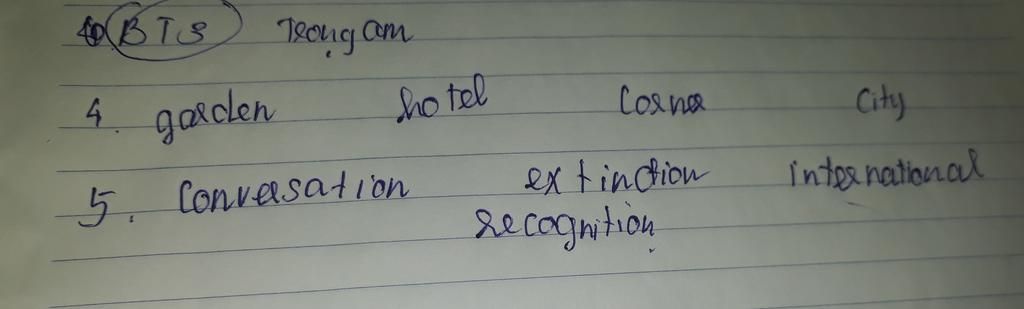 BTS Trọng âm
4. garden hotel Corner City
5. Conversation extinction international
recognition